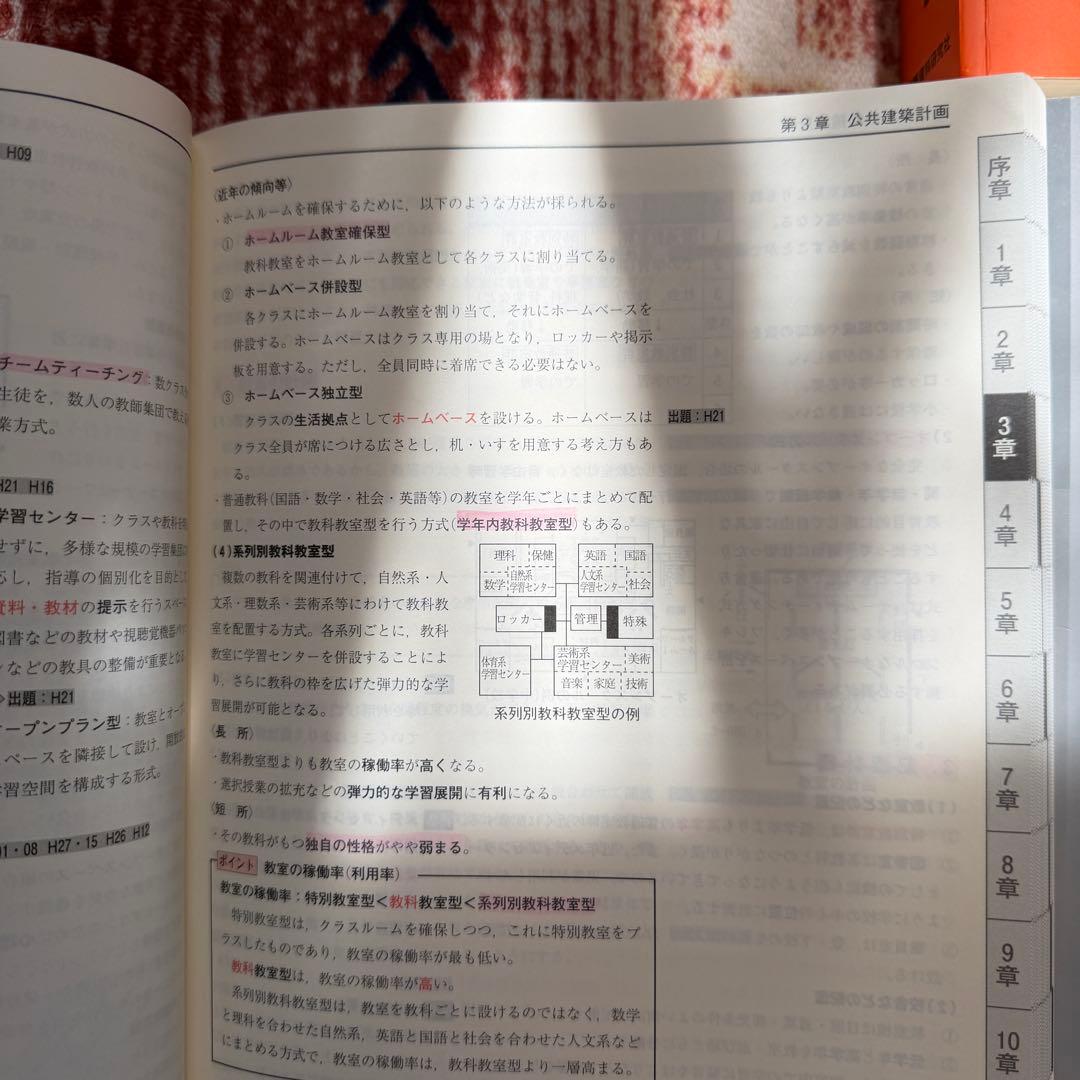 H09
チームティーチング：数クラス
生徒を，数人の教師集団で教え
業方式。
H21 H16
学習センター：クラスや教科を
せずに，多様な規模の学習集団に
応し，指導の個別化を目的とし
資料・教材の提示を行うスペース
図書などの教材や視聴覚機器
ンなどの教具の整備が重要となる
出題：H21
オープンプラン型：教室とオー
スペースを隣接して設け，
学習空間を構成する形式。
01・08 H27・15 H26 H12
第3章 公共建築計画
〈近年の傾向等〉
・ホームルームを確保するために，以下のような方法が採られる。
① ホームルーム教室確保型
教科教室をホームルーム教室として各クラスに割り当てる。
② ホームベース併設型
各クラスにホームルーム教室を割り当て，それにホームベースを
併設する。ホームベースはクラス専用の場となり，ロッカーや掲示
板を用意する。ただし，全員同時に着席できる必要はない。
③ ホームベース独立型
クラスの生活拠点としてホームベースを設ける。ホームベースは
出題：H21
クラス全員が席につける広さとし，机・いすを用意する考え方もあ
る。
・普通教科(国語・数学・社会・英語等)の教室を学年ごとにまとめて配
置し，その中で教科教室型を行う方式(学年内教科教室型)もある。
(4)系列別教科教室型
複数の教科を関連付けて，自然系・人
文系・理数系・芸術系等にわけて教科教
室を配置する方式。各系列ごとに，教科
教室に学習センターを併設することによ
り，さらに教科の枠を広げた弾力的な学
習展開が可能となる。
理科 保健
数学 自然系
学習センター
英語 国語
人文系
学習センター 社会
ロッカー
管理
特殊
体育系
学習センター
芸術系
学習センター 美術
音楽 家庭 技術
系列別教科教室型の例
〈長 所〉
・教科教室型よりも教室の稼働率が高くなる。
・選択授業の拡充などの弾力的な学習展開に有利になる。
〈短 所〉
・その教科がもつ独自の性格がやや弱まる。
ポイント 教室の稼働率(利用率)
教室の稼働率：特別教室型＜教科教室型＜系列別教科教室型
特別教室型は，クラスルームを確保しつつ，これに特別教室をプ
ラスしたものであり，教室の稼働率が最も低い。
教科教室型は，教室の稼働率が高い。
系列別教科教室型は，教室を教科ごとに設けるのではなく，数学
と理科を合わせた自然系，英語と国語と社会を合わせた人文系など
にまとめる方式で，教室の稼働率は，教科教室型より一層高まる。
序章
1章
2章
3章
4章
5章
6章
7章
8章
9章
10章